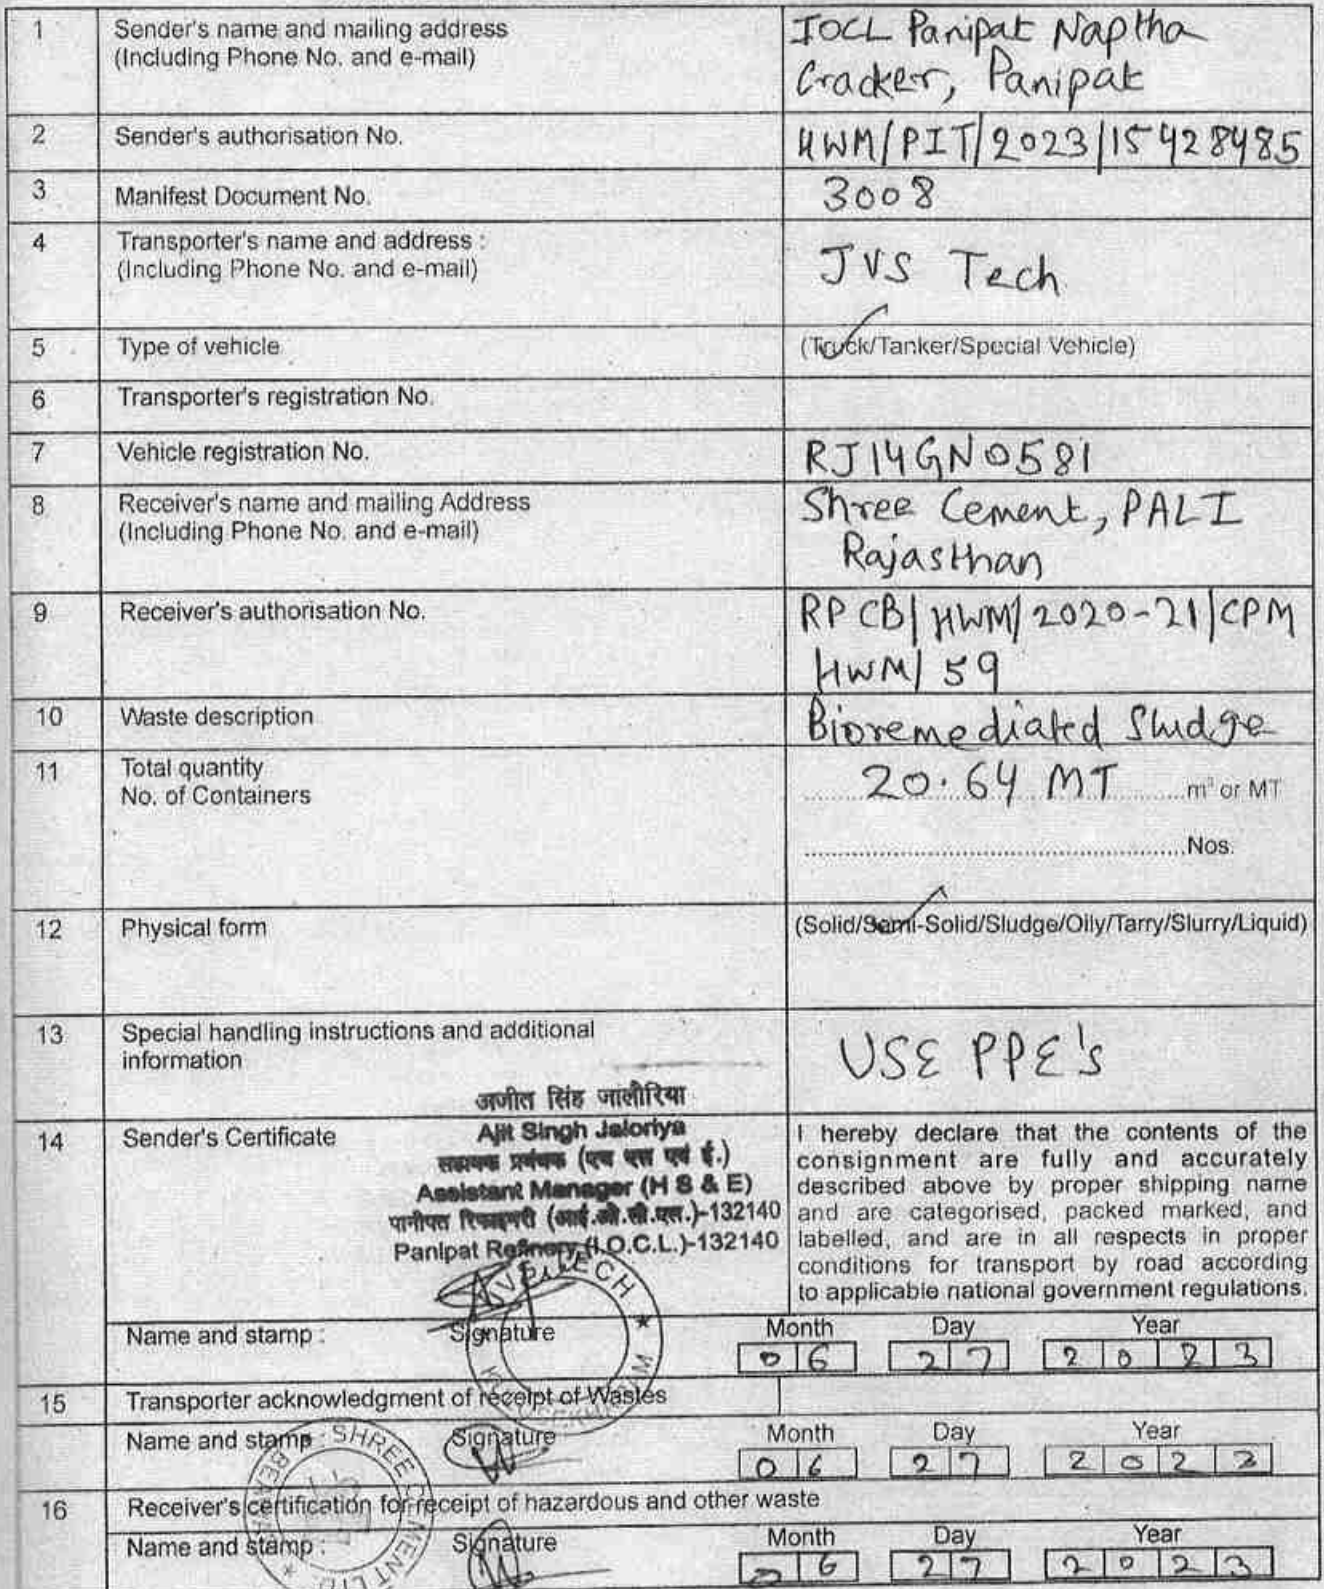 1 Sender's name and mailing address IOCL Panipat Naptha
(Including Phone No. and e-mail) Cracker, Panipat
2 Sender's authorisation No. HWM/PIT/2023/15428485
3 Manifest Document No. 3008
4 Transporter's name and address :
(Including Phone No. and e-mail) JVS Tech
5 Type of vehicle (Truck/Tanker/Special Vehicle)
6 Transporter's registration No.
7 Vehicle registration No. RJ14GN0581
8 Receiver's name and mailing Address Shree Cement, PALI
(Including Phone No. and e-mail) Rajasthan
9 Receiver's authorisation No. RPCB/HWM/2020-21/CPM
HWM/59
10 Waste description Bioremediated Sludge
11 Total quantity 20.64 MT m³ or MT
No. of Containers
Nos.
12 Physical form (Solid/Semi-Solid/Sludge/Oily/Tarry/Slurry/Liquid)
13 Special handling instructions and additional
information USE PPE's
अजीत सिंह जालौरिया
14 Sender's Certificate
Ajit Singh Jaloriya
सहायक प्रबंधक (एच एस एवं ई.)
Assistant Manager (H S & E)
पानीपत रिफाइनरी (आई.ओ.सी.एल.)-132140
Panipat Refinery (I.O.C.L.)-132140
I hereby declare that the contents of the
consignment are fully and accurately
described above by proper shipping name
and are categorised, packed marked, and
labelled, and are in all respects in proper
conditions for transport by road according
to applicable national government regulations.
JVS TECH
Name and stamp : Signature Month Day Year
06 27 2023
15 Transporter acknowledgment of receipt of Wastes
Name and stamp : Signature Month Day Year
06 27 2023
SHREE CEMENT LTD.
16 Receiver's certification for receipt of hazardous and other waste
Name and stamp : Signature Month Day Year
06 27 2023